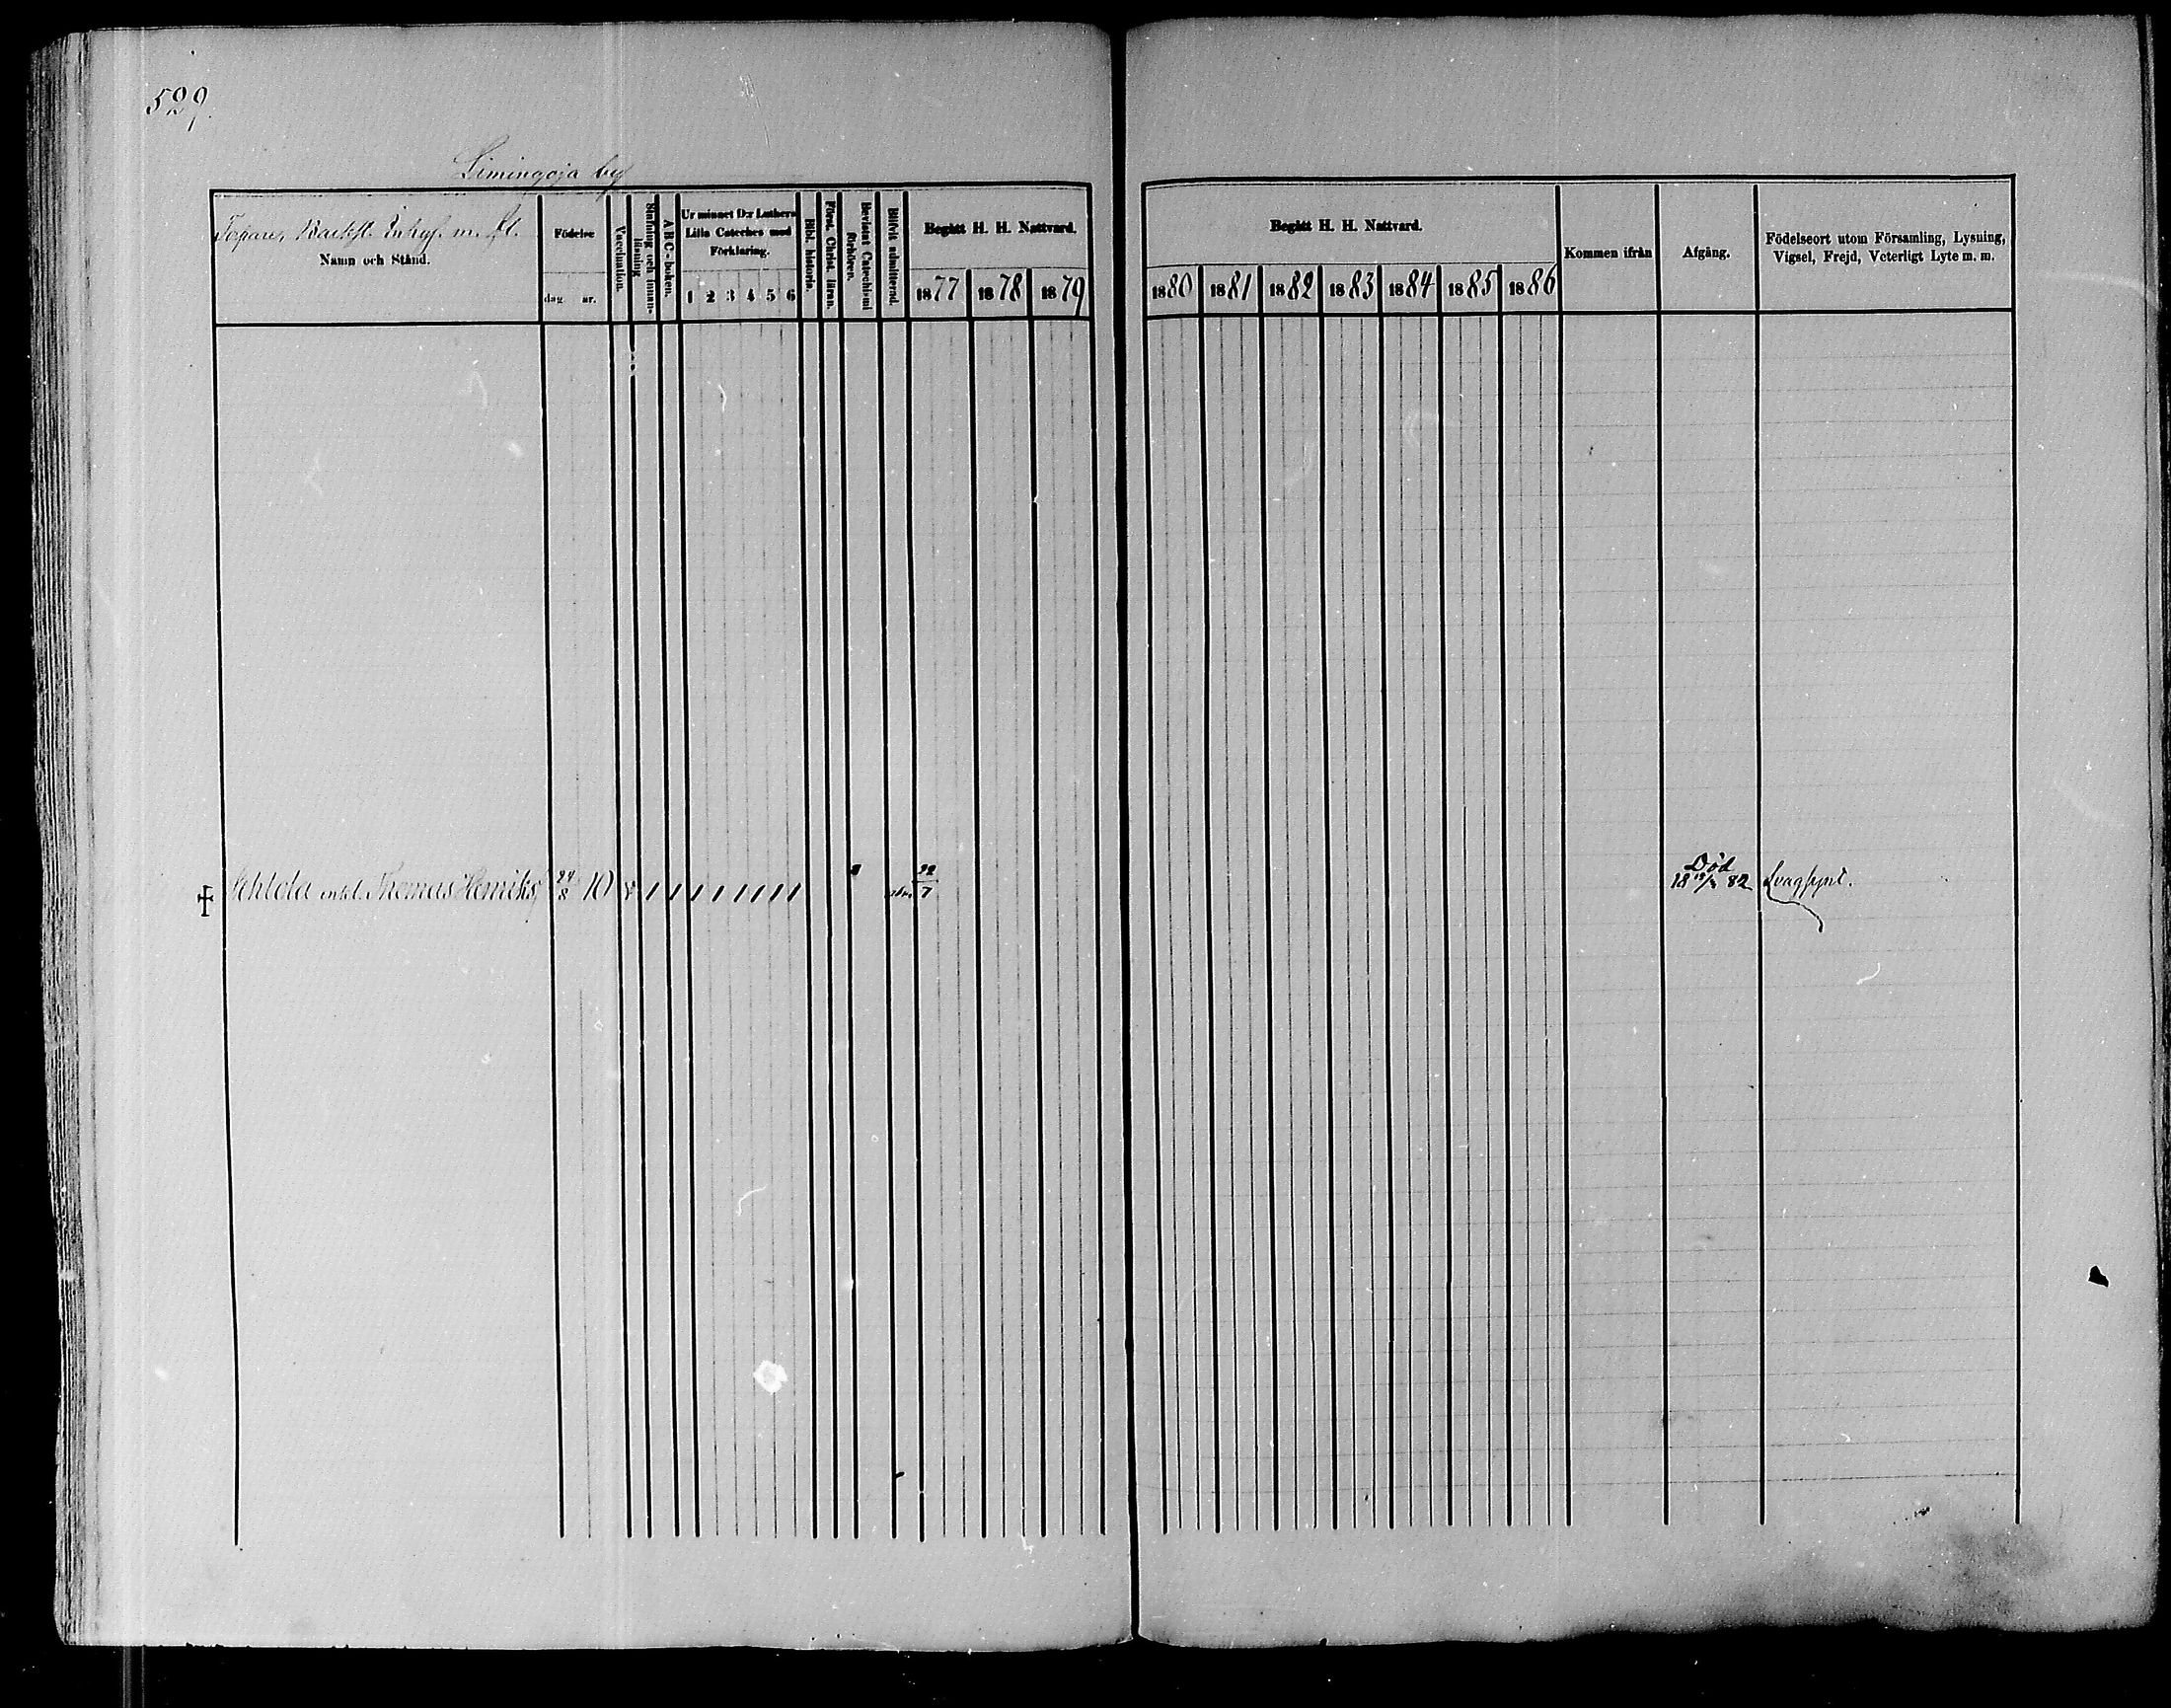 529.
Limingoja by
Torpare, Backst. Inhys. m. fl.
Namn och Stånd.
Födelse
dag år.
Vaccination.
Stafning och Innan-
läsning
A B C-boken.
Ur minnet D:r Luthers
Lilla Cateches med
Förklaring.
1 2 3 4 5 6
Bibl. historia.
Först. Christ. läran.
Bevistat Catechismi
förhören.
Blifvit admitterad.
Begått H. H. Nattvard.
1877 1878 1879
Begått H. H. Nattvard.
1880 1881 1882 1883 1884 1885 1886
Kommen ifrån
Afgång.
Födelseort utom Församling, Lysning,
Vigsel, Frejd, Veterligt Lyte m. m.
Thomas Henriks, 24/8 10 22/7
Död
82 Svagsynt.